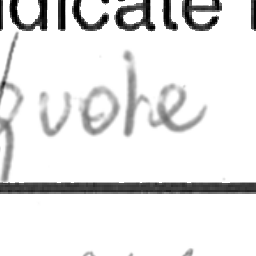 dicate
quote